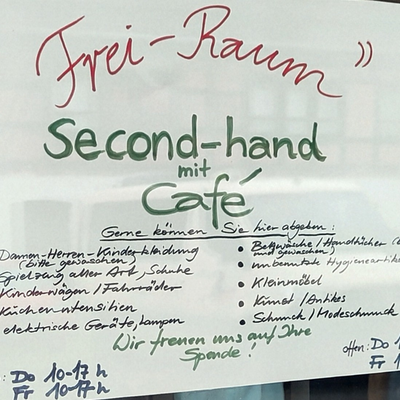 Frei-Raum"
Second-hand
mit
Café
Gerne können Sie hier abgeben:
Damen-Herren-Kinderkleidung
(bitte gewaschen)
Spielzeug aller Art, Schuhe
Kinderwägen / Fahrräder
Küchenutensilien
elektrische Geräte, Lampen
• Bettwäsche / Handtücher (
und gewaschen)
• unbenutzte Hygieneartike
• Kleinmöbel
• Kunst / Antikes
• Schmuck / Modeschmuck
Wir freuen uns auf Ihre
Spende!
: Do 10-17 h
Fr 10-17 h
offen: Do 1
Fr 1